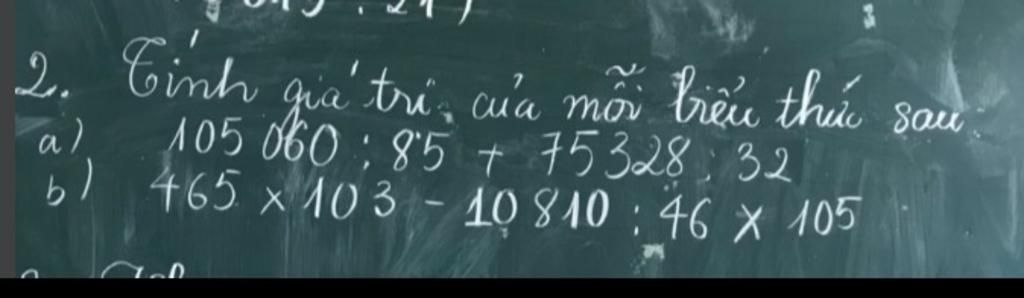 2. Tính giá trị của mỗi biểu thức sau:
a) 105 060 : 85 + 75 328 : 32
b) 465 × 103 - 10 810 : 46 × 105